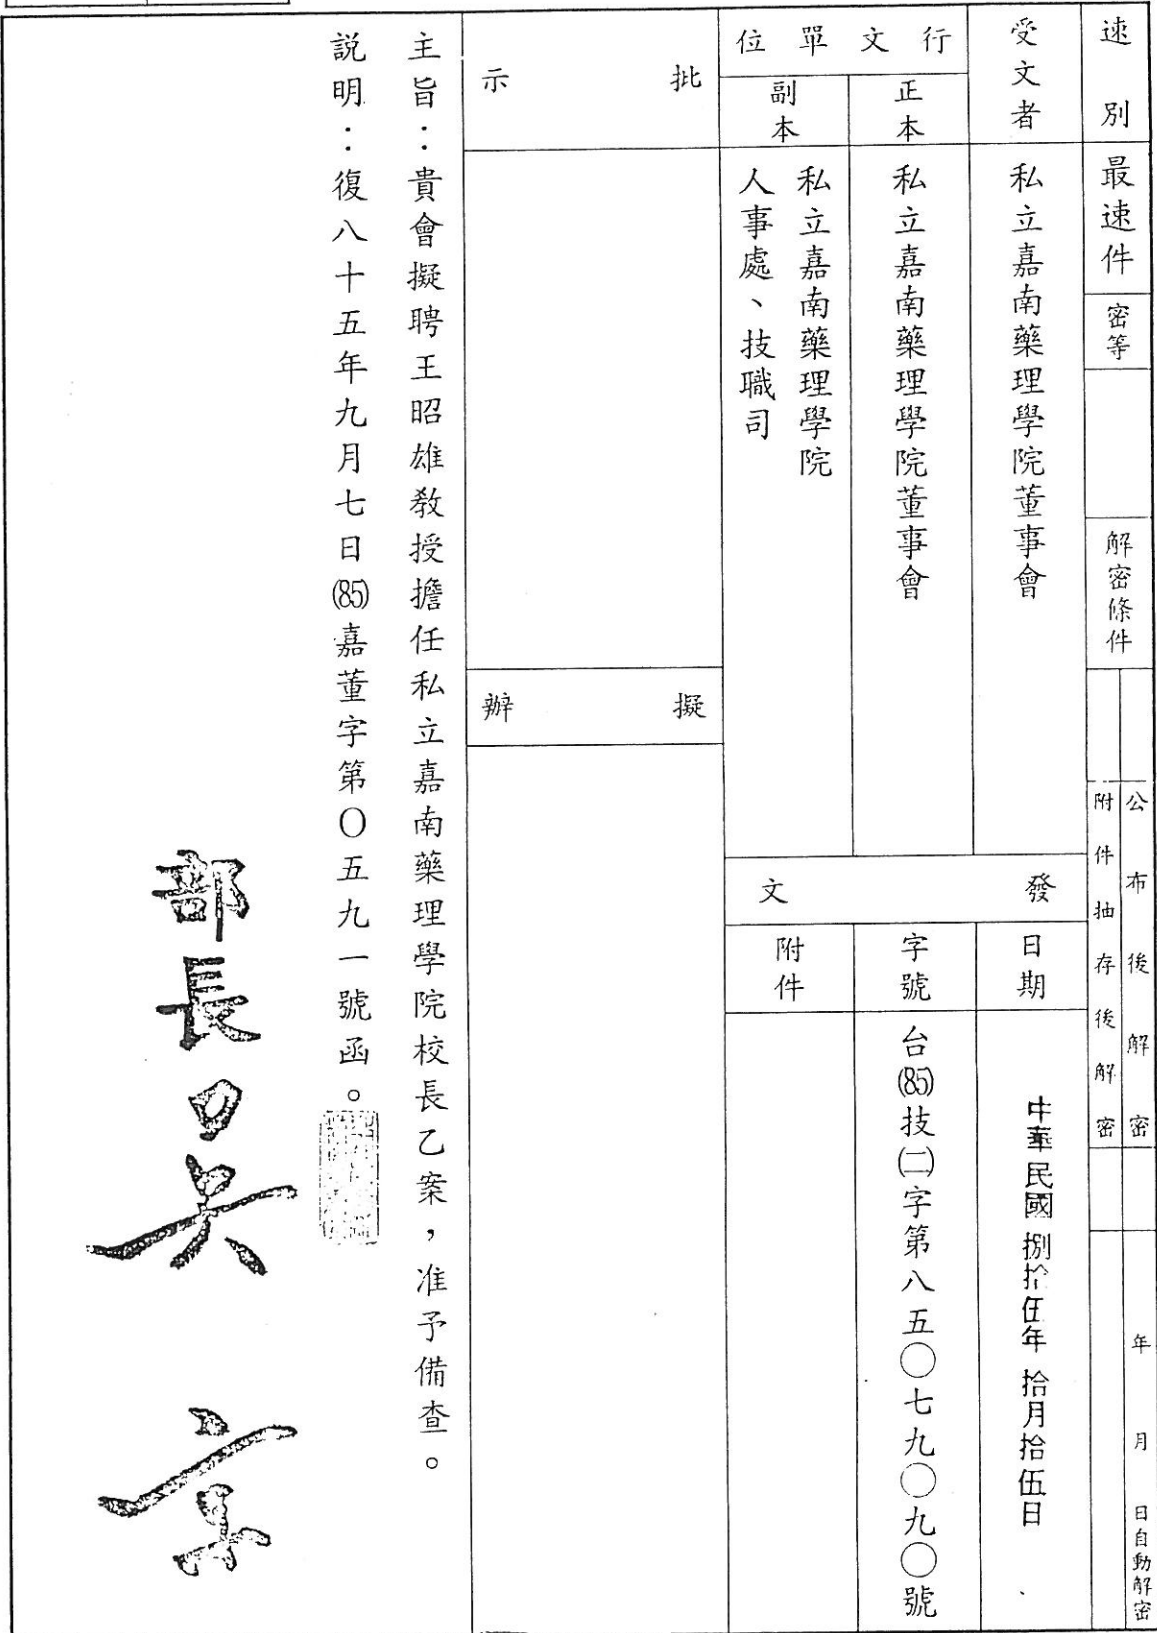 速別
最速件
密等
解密條件
公布後解密
附件抽存後解密
年月日自動解密
受文者
私立嘉南藥理學院董事會
行文單位
正本
私立嘉南藥理學院董事會
副本
私立嘉南藥理學院
人事處、技職司
發文
日期
中華民國捌拾伍年拾月拾伍日
字號
台(85)技(二)字第八五〇七九〇九〇號
附件
批示
擬辦
主旨：貴會擬聘王昭雄教授擔任私立嘉南藥理學院校長乙案，准予備查。
說明：復八十五年九月七日(85)嘉董字第〇五九一號函。
部長吳京